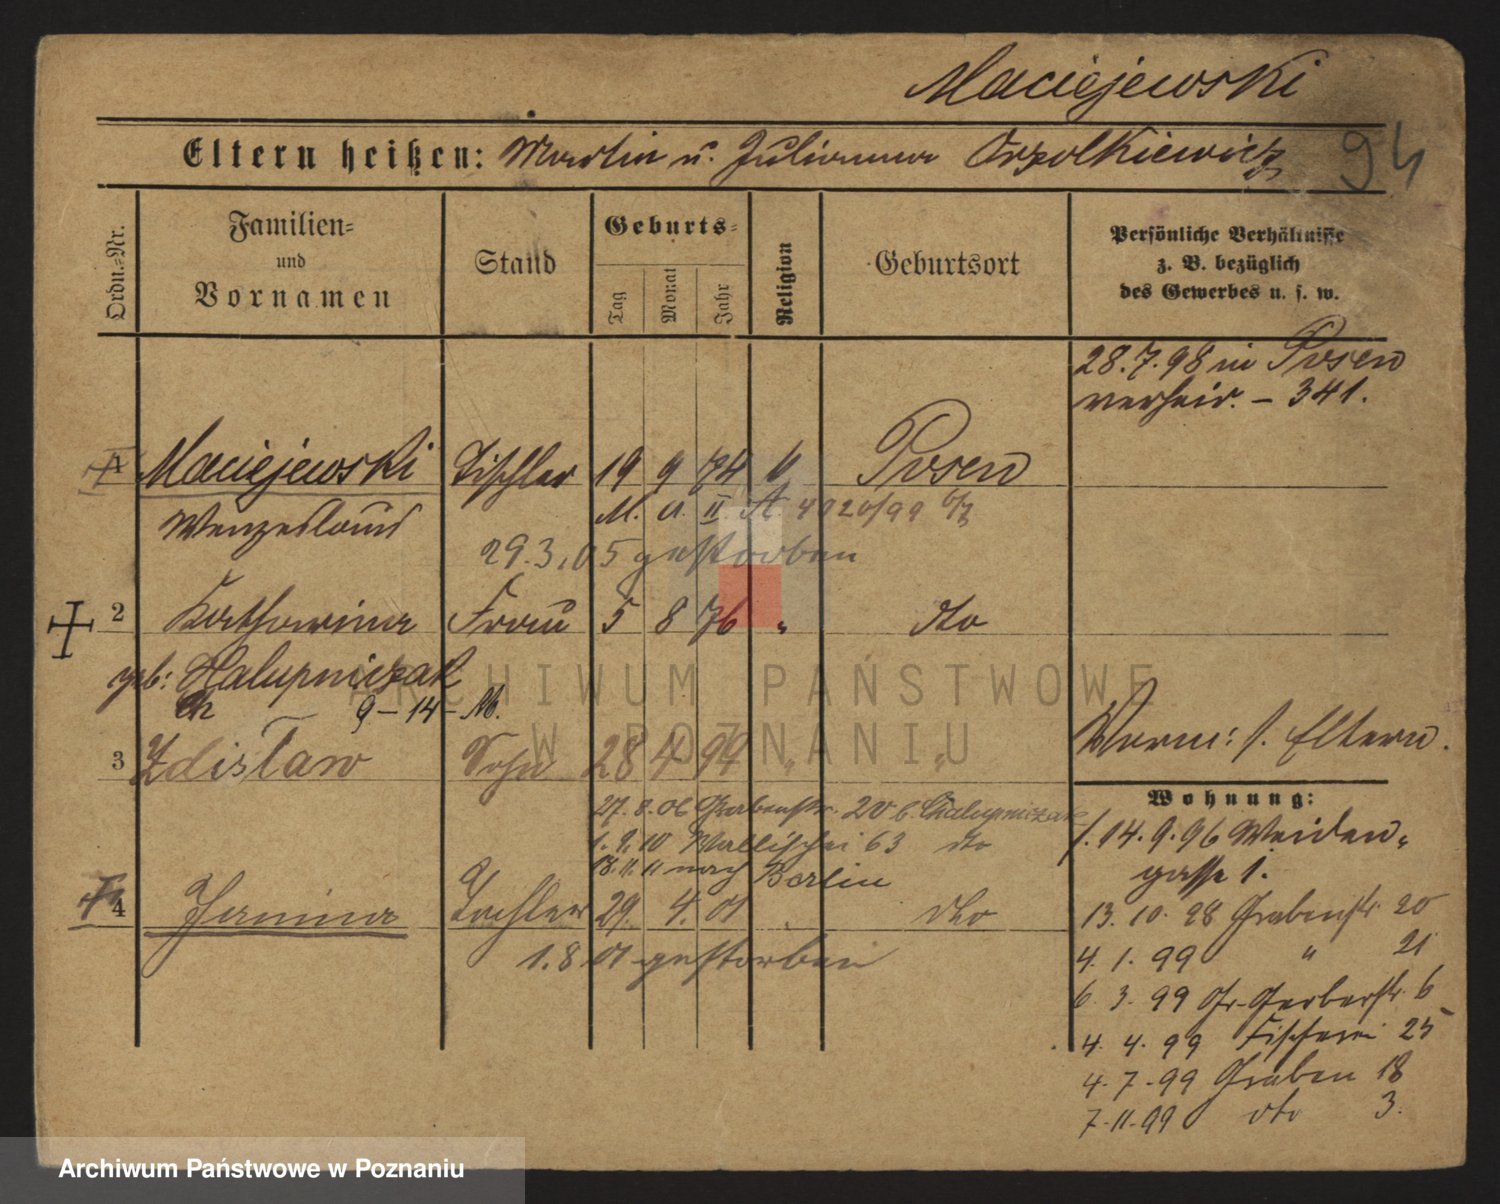 Maciejewski
Eltern heißen: Martin u. Julianna Orzolkiewicz 94
Ordn.-Nr.
Familien-
und
Vornamen
Stand
Geburts-
Tag
Monat
Jahr
Religion
Geburtsort
Persönliche Verhältnisse
z. B. bezüglich
des Gewerbes u. s. w.
28.7.98 in Posen
verheir. – 341.
1 Maciejewski Tischler 19 9 74 k Posen
Wenzeslaus M. U. II A 4920/99
29.3.05 gestorben
2 Katharina Frau 5 8 76 " dto
geb: Halupniczak
Ch 9–14–
3 Zdislaw Sohn 28 4 99 " "
Vorm: s. Eltern.
27.8.06 Grabenstr. 20 b. Chalupniczak
1.9.10 Wallischei 63 dto
18.11.11 nach Berlin
4 Janina Tochter 29. 4. 01 " dto
1.8.01 gestorben
Wohnung:
1.14.9.96 Weiden-
gasse 1.
13.10.98 Grabenstr. 20
4.1.99 " 21
6.3.99 Gr. Gerberstr. 6
4.4.99 Fischerei 25
4.7.99 Graben 18
7.11.99 dto 3.
ARCHIWUM PAŃSTWOWE
W POZNANIU
Archiwum Państwowe w Poznaniu